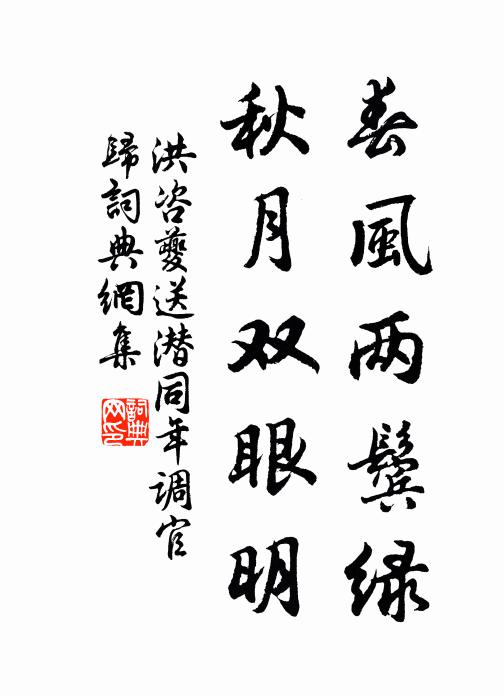 春風两鬓緑
秋月双眼明
洪咨夔送潜同年调官
歸詞典網集
詞典网印